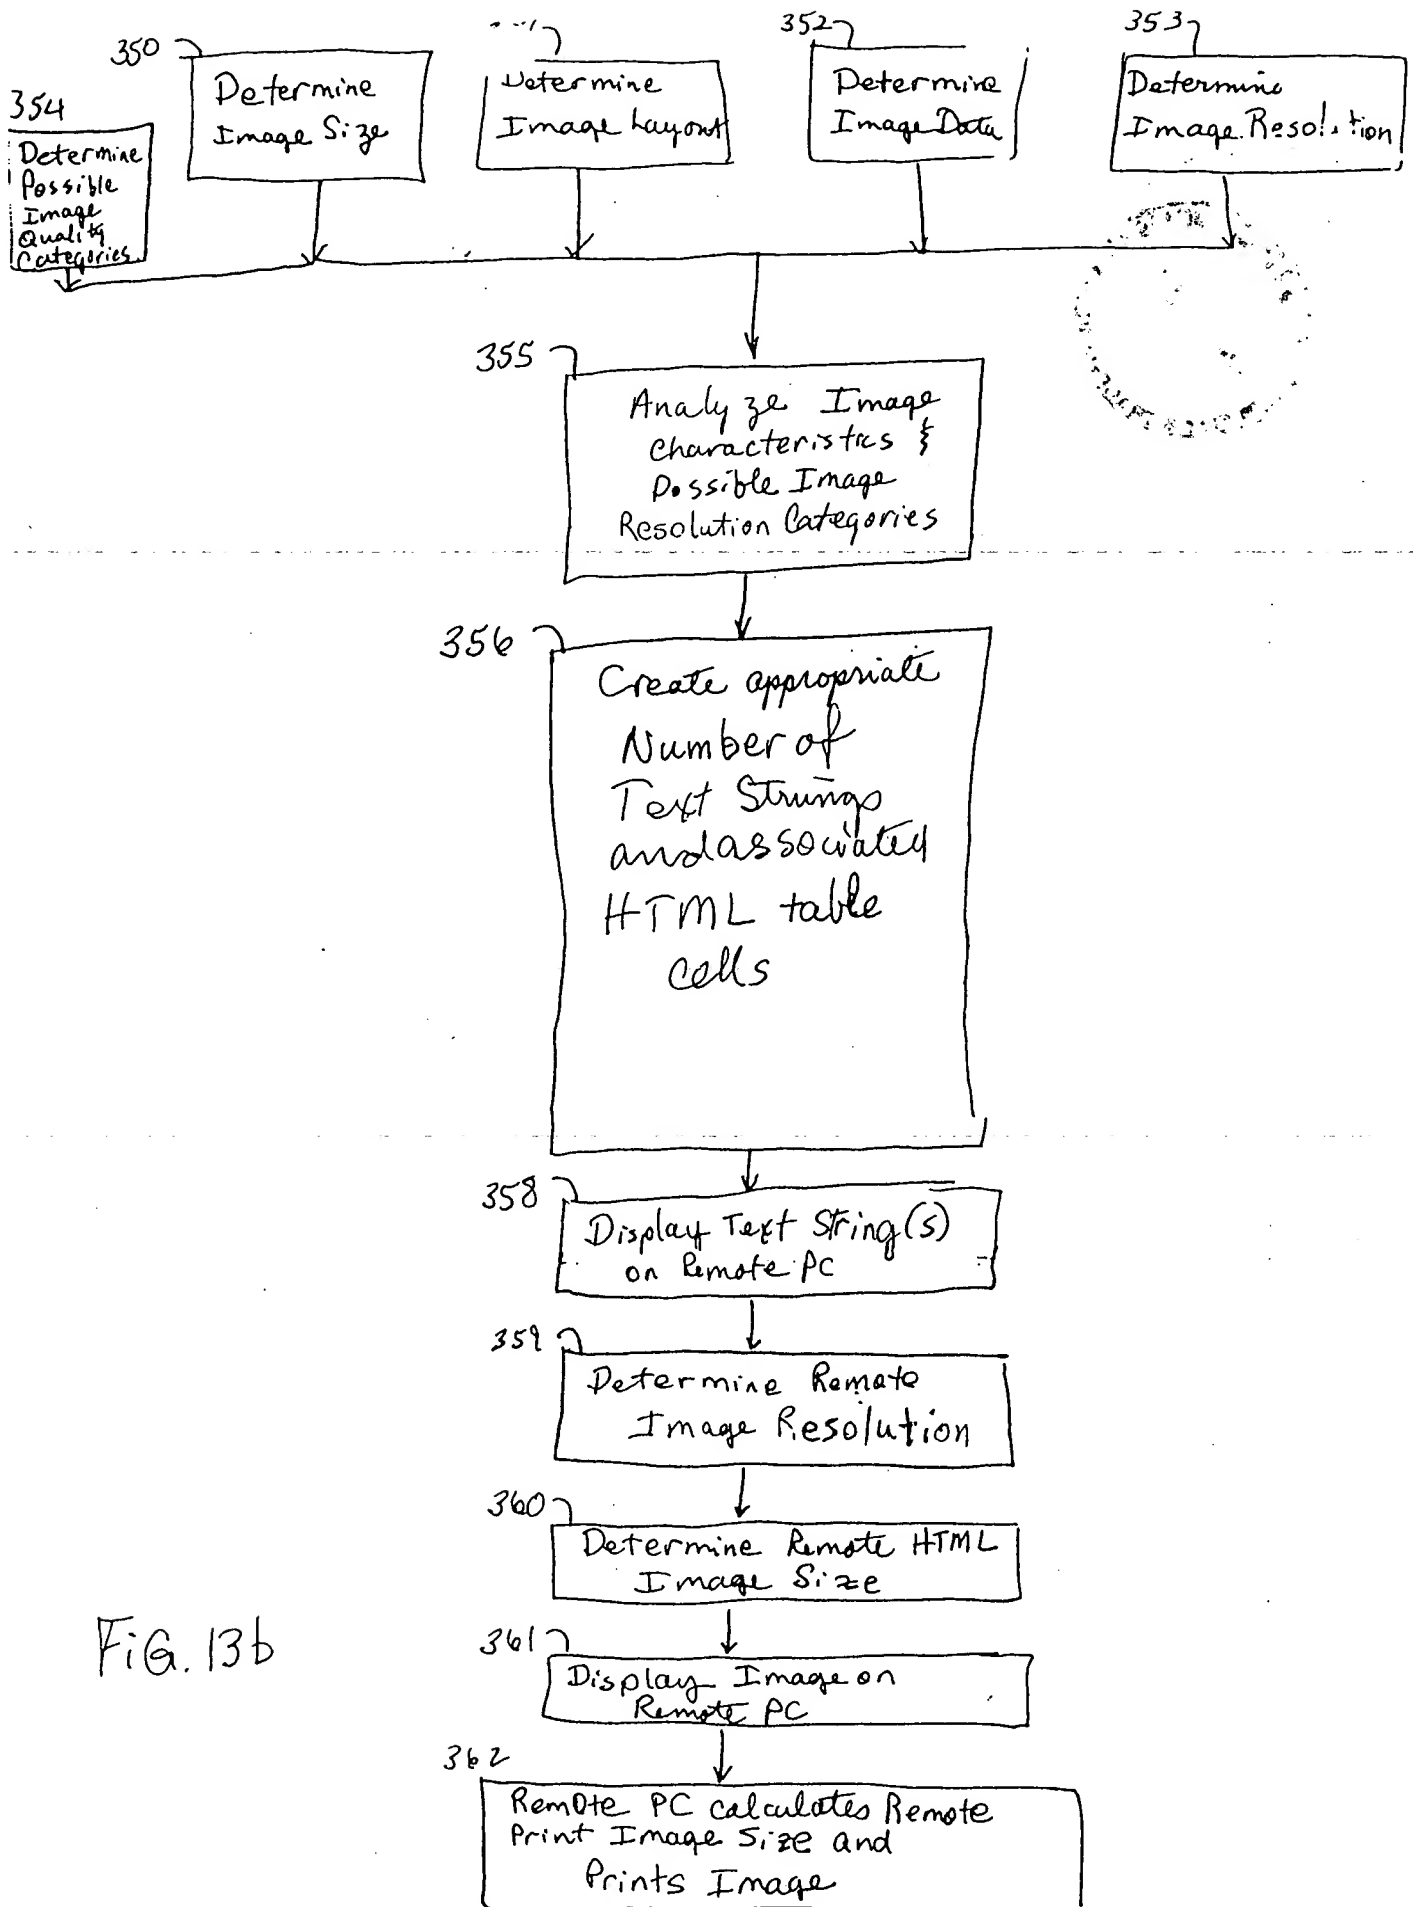 350
352
353
354
Determine
Image Size
Determine
Image Layout
Determine
Image Data
Determine
Image Resolution
Determine
Possible
Image
Quality
Categories
355
Analyze Image
Characteristics &
Possible Image
Resolution Categories
356
Create appropriate
Number of
Text Strings
and associated
HTML table
cells
358
Display Text String(s)
on Remote PC
359
Determine Remote
Image Resolution
360
Determine Remote HTML
Image Size
361
Display Image on
Remote PC
362
Remote PC calculates Remote
Print Image Size and
Prints Image
FiG. 13b